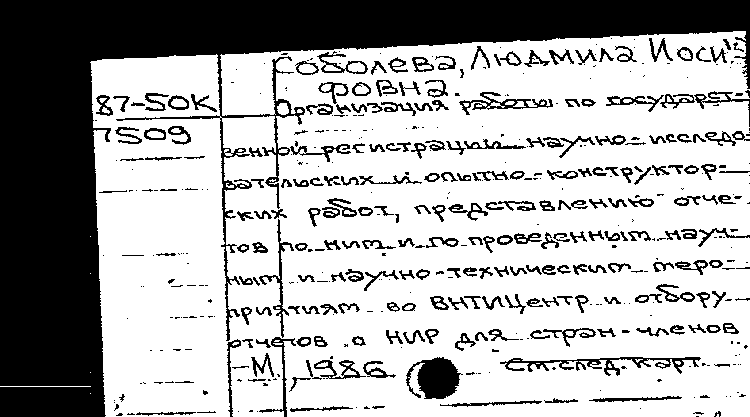 Соболева, Людмила Иоси-
фовна.
87-50К
7509
Организация работы по государст-
венной регистрации научно-исследо-
вательских и опытно-конструктор-
ских работ, представлению отче-
тов по ним и по проведенным науч-
ным и научно-техническим меро-
приятиям во ВНТИЦентр и отбору
отчетов о НИР для стран-членов
-М, 1986 См.след.карт.